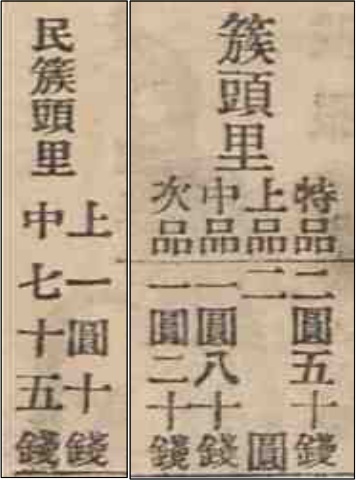 簇頭里
特品 二圓五十錢
上品 二圓
中品 一圓八十錢
次品 一圓二十錢
民簇頭里
上 一圓十錢
中 七十五錢